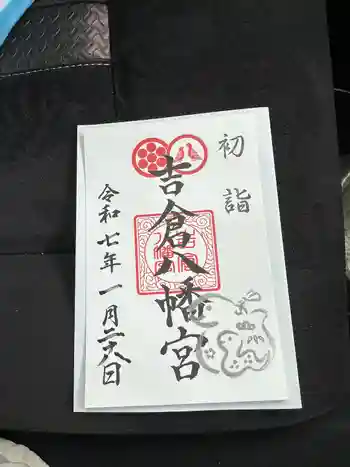 初詣
八
吉倉八幡宮
令和七年一月二十八日